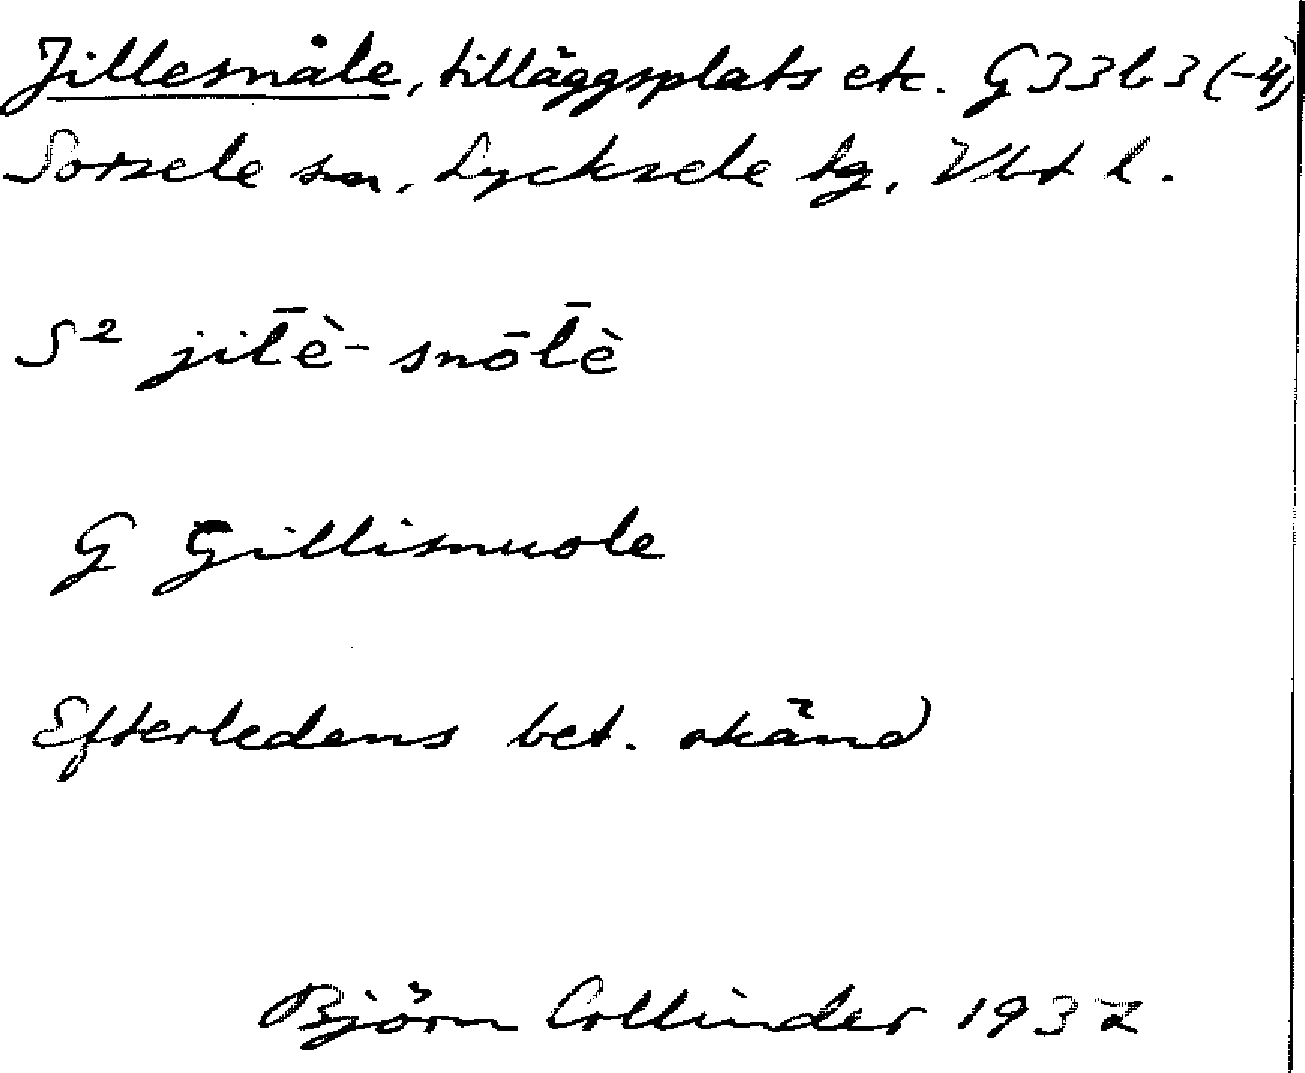 Jillesnåle, tilläggsplats etc. G33b3(-4)
Sorsele sn, Lycksele tg, Vbt l.
S² jil̄è-snōl̄è
G Gillisnuole
Efterledens bet. okänd
Björn Collinder 1937